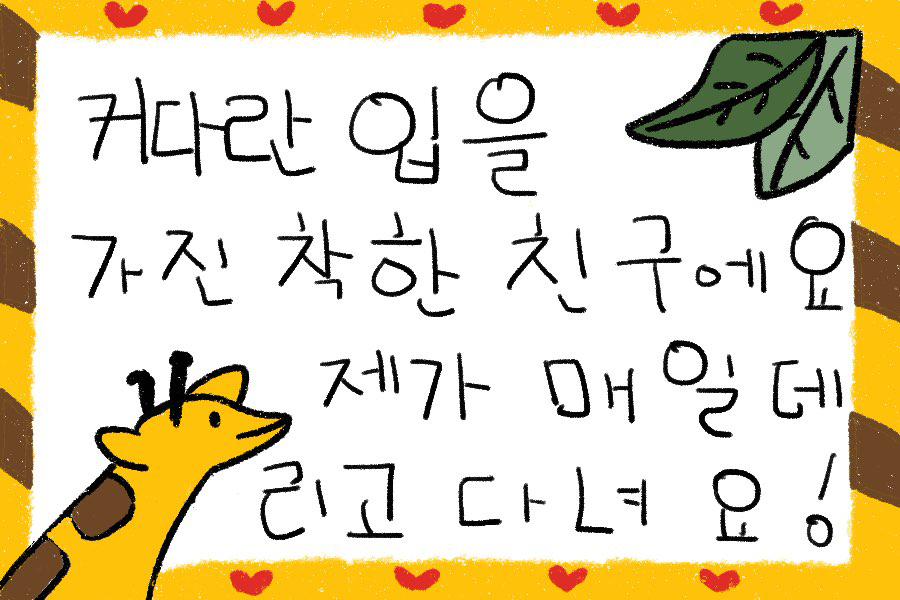 커다란 입을
가진 착한 친구에요
제가 매일데
리고 다녀요!